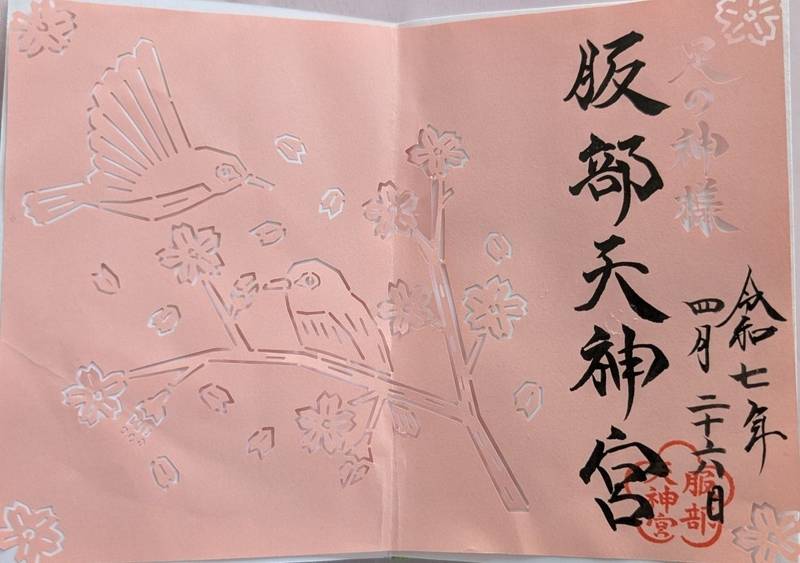 足の神様
服部天神宮
令和七年
四月二十六日
服部
天神宮